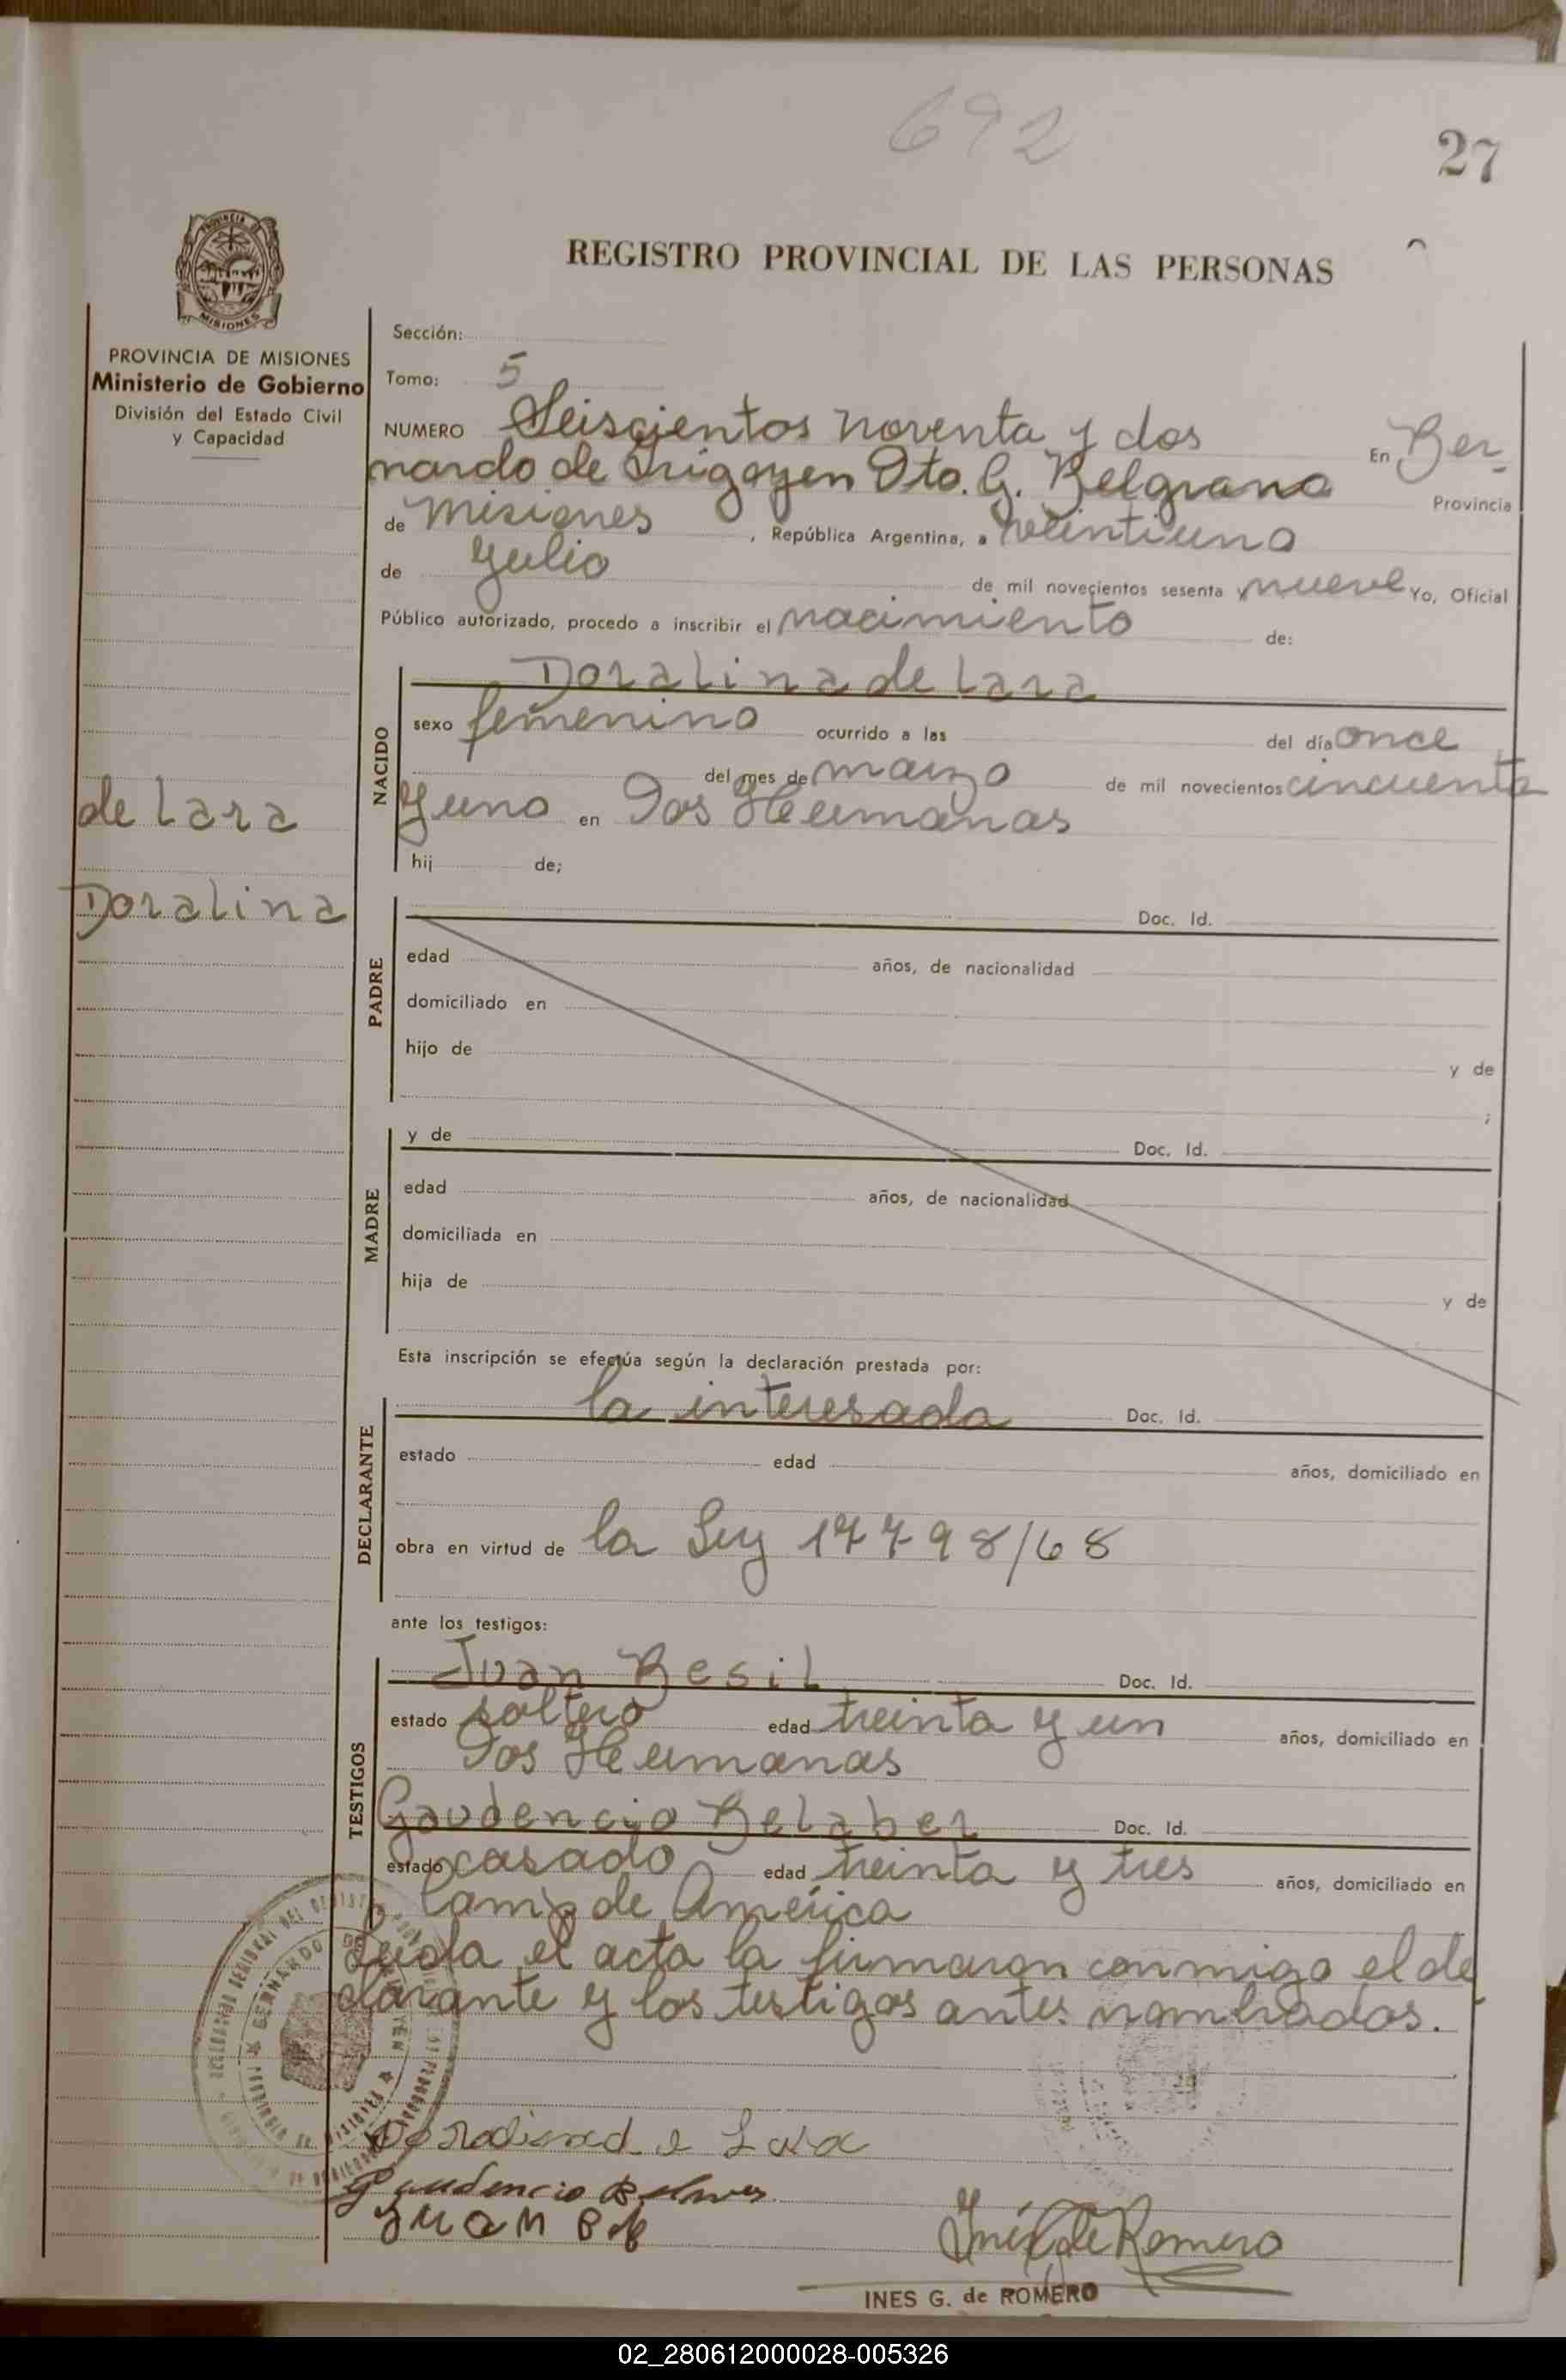 692
27
PROVINCIA DE
MISIONES
REGISTRO PROVINCIAL DE LAS PERSONAS
PROVINCIA DE MISIONES
Ministerio de Gobierno
División del Estado Civil
y Capacidad
de Lara
Doralina
Sección:
Tomo: 5
NUMERO Seiscientos noventa y dos En Ber-
nardo de Irigoyen Dto. G. Belgrano Provincia
de Misiones, República Argentina, a veintiuno
de Julio de mil novecientos sesenta y nueve Yo, Oficial
Público autorizado, procedo a inscribir el nacimiento de:
NACIDO
Doralina de Lara
sexo femenino ocurrido a las del día once
del mes de marzo de mil novecientos cincuenta
y uno en Dos Hermanas
hij de;
PADRE
Doc. Id.
edad años, de nacionalidad
domiciliado en
hijo de y de
;
MADRE
y de Doc. Id.
edad años, de nacionalidad
domiciliada en
hija de y de
Esta inscripción se efectúa según la declaración prestada por:
DECLARANTE
la interesada Doc. Id.
estado edad años, domiciliado en
obra en virtud de la Ley 17798/68
ante los testigos:
TESTIGOS
Juan Besil Doc. Id.
estado soltero edad treinta y un años, domiciliado en
Dos Hermanas
Gaudencio Belaber Doc. Id.
estado casado edad treinta y tres años, domiciliado en
de América
Leida el acta la firmaron conmigo el de
clarante y los testigos antes nombrados.
Doralina de Lara
Gaudencio
Juan
Inés G de Romero
INES G. de ROMERO
02_280612000028-005326